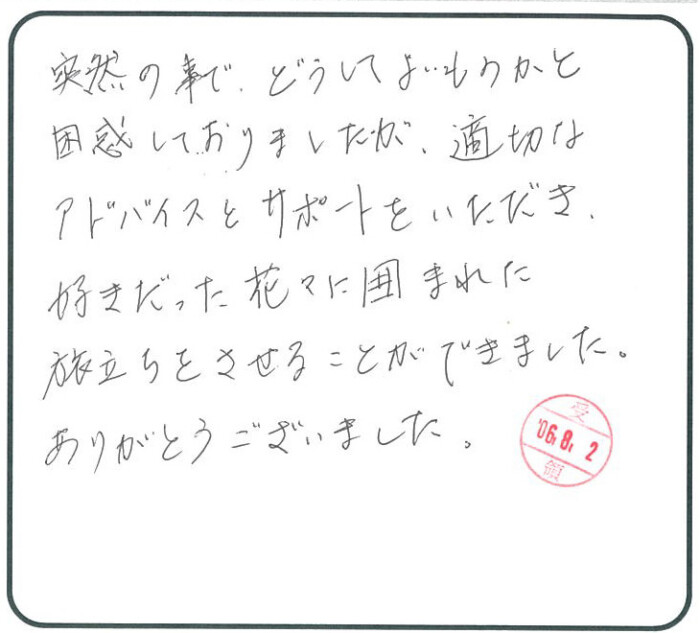 突然の事で、どうしてよいものかと
困惑しておりましたが、適切な
アドバイスとサポートをいただき、
好きだった花々に囲まれた
旅立ちをさせることができました。
ありがとうございました。
受
'06.8.2
領